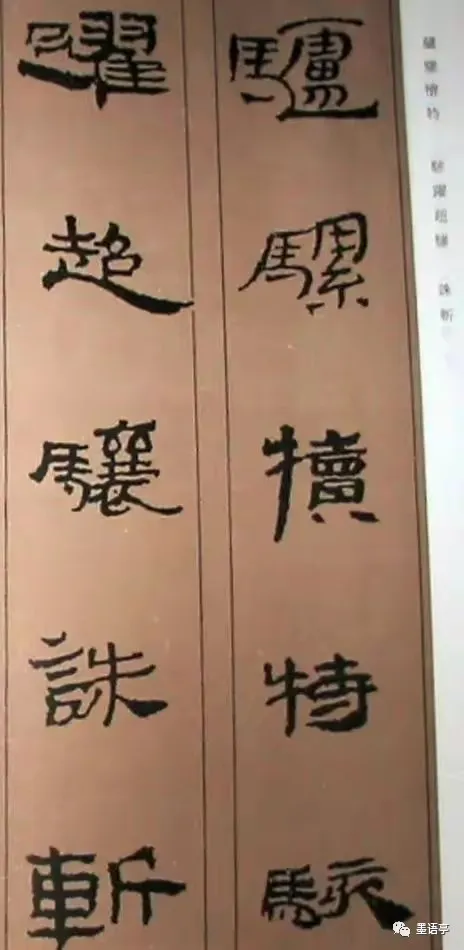 驢騾犢特 駭躍超驤 誅斬
驢騾犢特駭
躍超驤誅斬
墨语亭